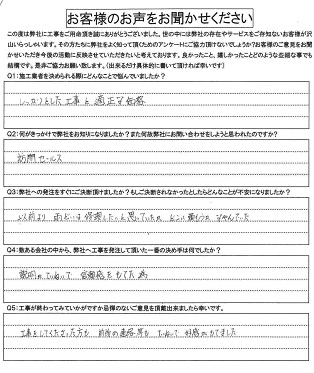 お客様のお声をお聞かせください
この度は弊社に工事をご用命頂き誠にありがとうございました。世の中には弊社の存在やサービスをご存知ないお客様が沢
山いらっしゃいます。その方たちに弊社をよく知って頂くためのアンケートにご協力頂けないでしょうか?お客様のご意見をお聞
かせいただき今後の活動に反映させていただきたいと考えております。良かったこと、嬉しかったことどのような些細な事でも
結構です。是非ご協力お願い致します。(出来るだけ具体的に書いて頂ければ幸いです)
Q1:施工業者を決められる際どんなことで悩んでいましたか?
しっかりとした工事と適正な価格
Q2:何がきっかけで弊社をお知りになりましたか?また何故弊社にお問い合わせをしようと思われたのですか?
訪問セールス
Q3:弊社への発注をすぐにご決断頂けましたか?もしご決断されなかったとしたらどんなことが不安になりましたか?
以前より 雨どいは修理したいと思っていたが どこに頼むか なやんでいた
Q4:数ある会社の中から、弊社へ工事を発注して頂いた一番の決め手は何でしたか?
説明がていねいで 信頼感をもてた為
Q5:工事が終わってみていかがですか忌憚のないご意見を頂戴出来ましたら幸いです。
工事をしてくださった方も 前後の連絡等も ていねいで 好感がもてました